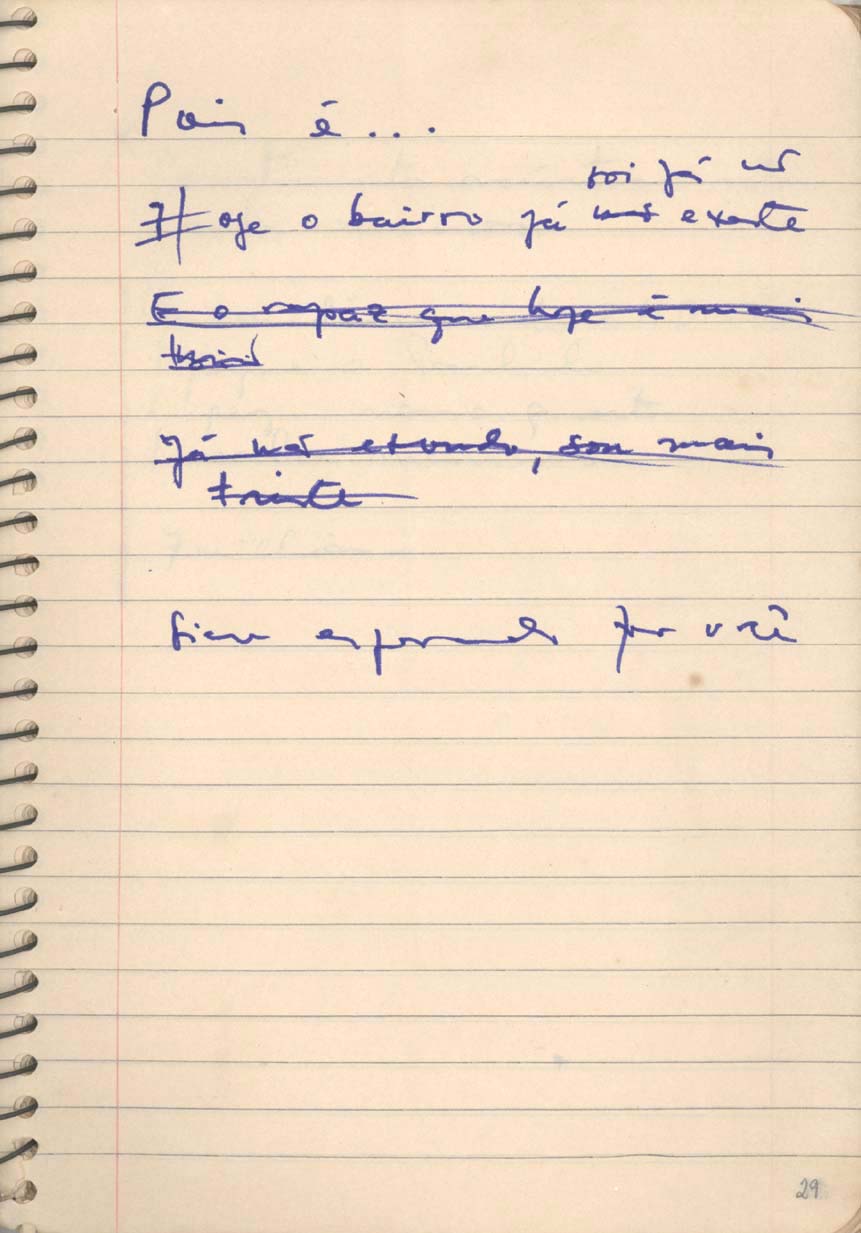 Pois é...
já não
Hoje o bairro já não existe
E o rapaz que hoje é mais
Já não estudo, sou mais
triste
Ficar esperando por você
29